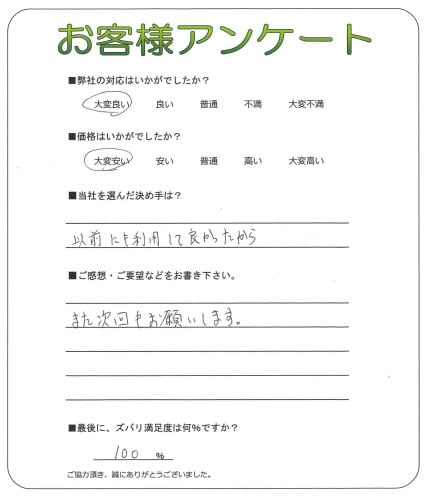 お客様アンケート
■弊社の対応はいかがでしたか?
大変良い 良い 普通 不満 大変不満
■価格はいかがでしたか?
大変安い 安い 普通 高い 大変高い
■当社を選んだ決め手は?
以前にも利用して良かったから
■ご感想・ご要望などをお書き下さい。
また次回もお願いします。
■最後に、ズバリ満足度は何%ですか?
100 %
ご協力頂き、誠にありがとうございました。